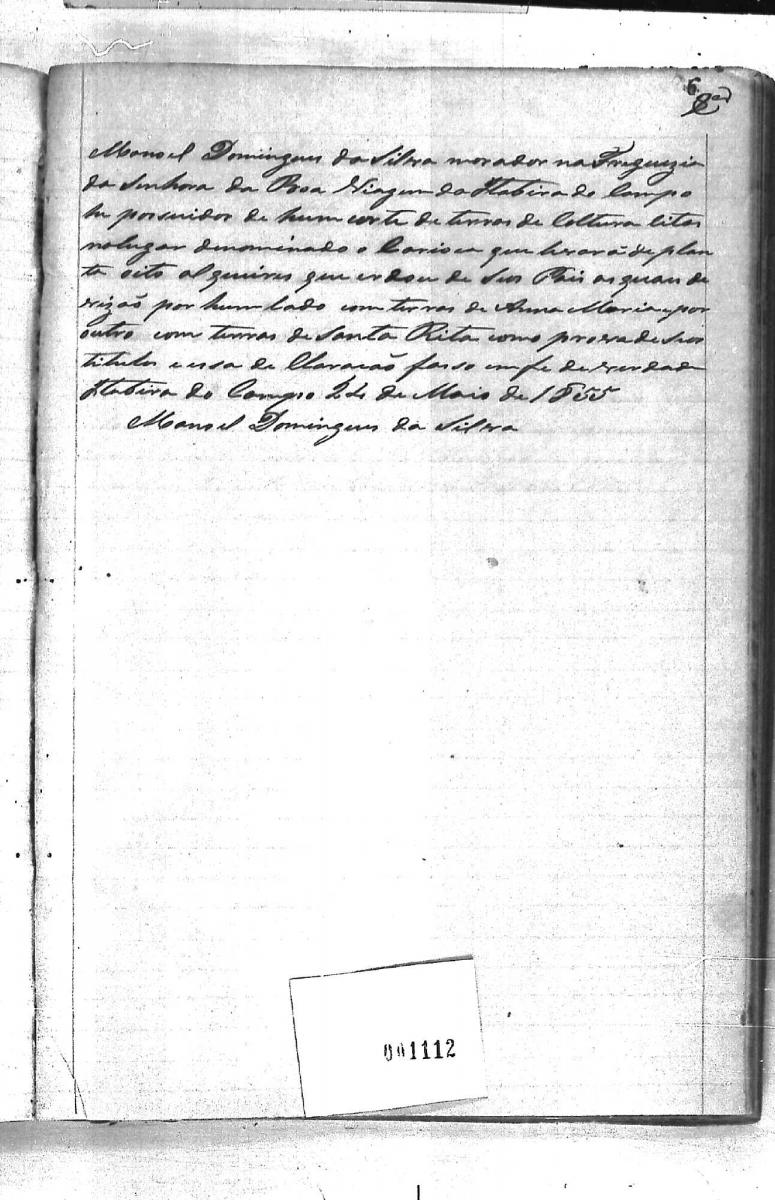 6
Manoel Domingues da Silva morador na Freguezia
da Senhora da Boa Viagem da Itabira do Campo
he possuidor de hum corte de terras de Coltura citas
no lugar denominado o Carioca que levará de plan
ta oito alqueires que erdou de seos Pais as quais de
vizaõ por hum lado com terras de Anna Maria e por
outro com terras de Santa Rita como prova de seos
titulos e essa de Claracaõ fasso em fe de verdade
Itabira do Campo 24 de Maio de 1855
Manoel Domingues da Silva
001112